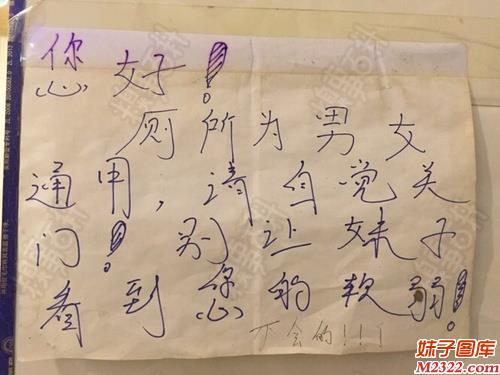 您好！
厕所为男女
通用，请自觉关
门！别让妹子
看到您的软弱！
不会的！！！
妹子图库
M2322.com